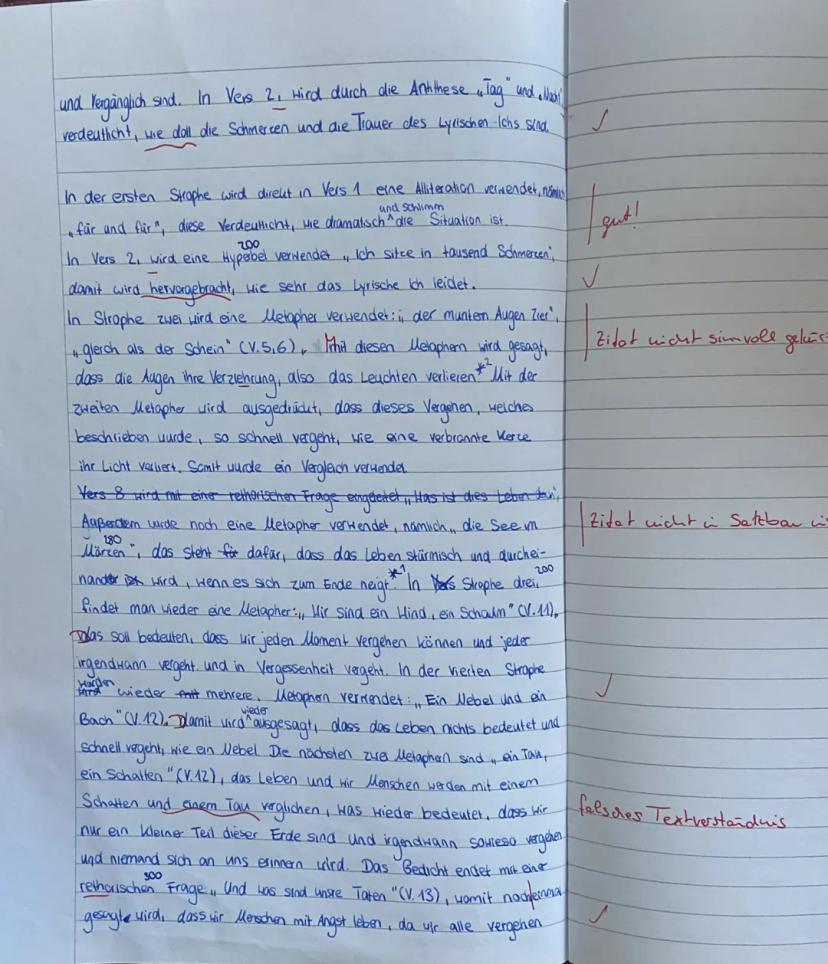 und Vergänglich sind. In Vers 2, wird durch die Antithese „Tag" und „Nacht"
verdeutlicht, wie doll die Schmerzen und die Trauer des Lyrischen-Ichs sind. ✓
In der ersten Strophe wird direkt in Vers 1 eine Alliteration verwendet, nämlich
und schlimm
„für und für", diese Verdeutlicht, wie dramatisch ^ die Situation ist. gut!
200
In Vers 2, wird eine Hyperbel verwendet „Ich sitze in tausend Schmerzen",
damit wird hervorgebracht, wie sehr das Lyrische Ich leidet. ✓
In Strophe zwei wird eine Metapher verwendet: „ der muntern Augen Zier",
„gleich als der Schein" (V.5,6). Mit diesen Metaphern wird gesagt, Zitat nicht sinnvoll
dass die Augen ihre Verziehrung, also das Leuchten verlieren.*2 Mit der
zweiten Metapher wird ausgedrückt, dass dieses Vergehen, welches
beschrieben wurde, so schnell vergeht, wie eine verbrannte Kerze
ihr Licht verliert. Somit wurde ein Vergleich verwendet.
Vers 8 wird mit einer rethorischen Frage eingeleitet „Was ist dies Leben doch",
Außerdem wurde noch eine Metapher verwendet, nämlich „die See im Zitat nicht in Satzbau
180
Märzen", das steht für dafür, dass das Leben stürmisch und durchei-
200
nander ist wird, wenn es sich zum Ende neigt.*1 In Vers Strophe drei,
findet man wieder eine Metapher: „Wir sind ein Wind, ein Schaum" (V.11),
das soll bedeuten, dass wir jeden Moment vergehen können und jeder
irgendwann vergeht und in Vergessenheit vergeht. In der vierten Strophe
werden
wird wieder mit mehrere Metaphern verwendet: „Ein Nebel und ein ✓
wieder
Bach" (V.12). Damit wird ^ ausgesagt, dass das Leben nichts bedeutet und
schnell vergeht, wie ein Nebel. Die nächsten zwei Metaphern sind „ein Tau,
ein Schatten" (V.12), das Leben und wir Menschen werden mit einem
Schatten und einem Tau verglichen, was wieder bedeutet, dass wir falsches Textverständnis
nur ein kleiner Teil dieser Erde sind und irgendwann sowieso vergehen
und niemand sich an uns erinnern wird. Das Gedicht endet mit einer
300
rethorischen Frage „Und was sind unsre Taten" (V.13), womit nocheinmal
gesagt wird, dass wir Menschen mit Angst leben, da wir alle vergehen ✓